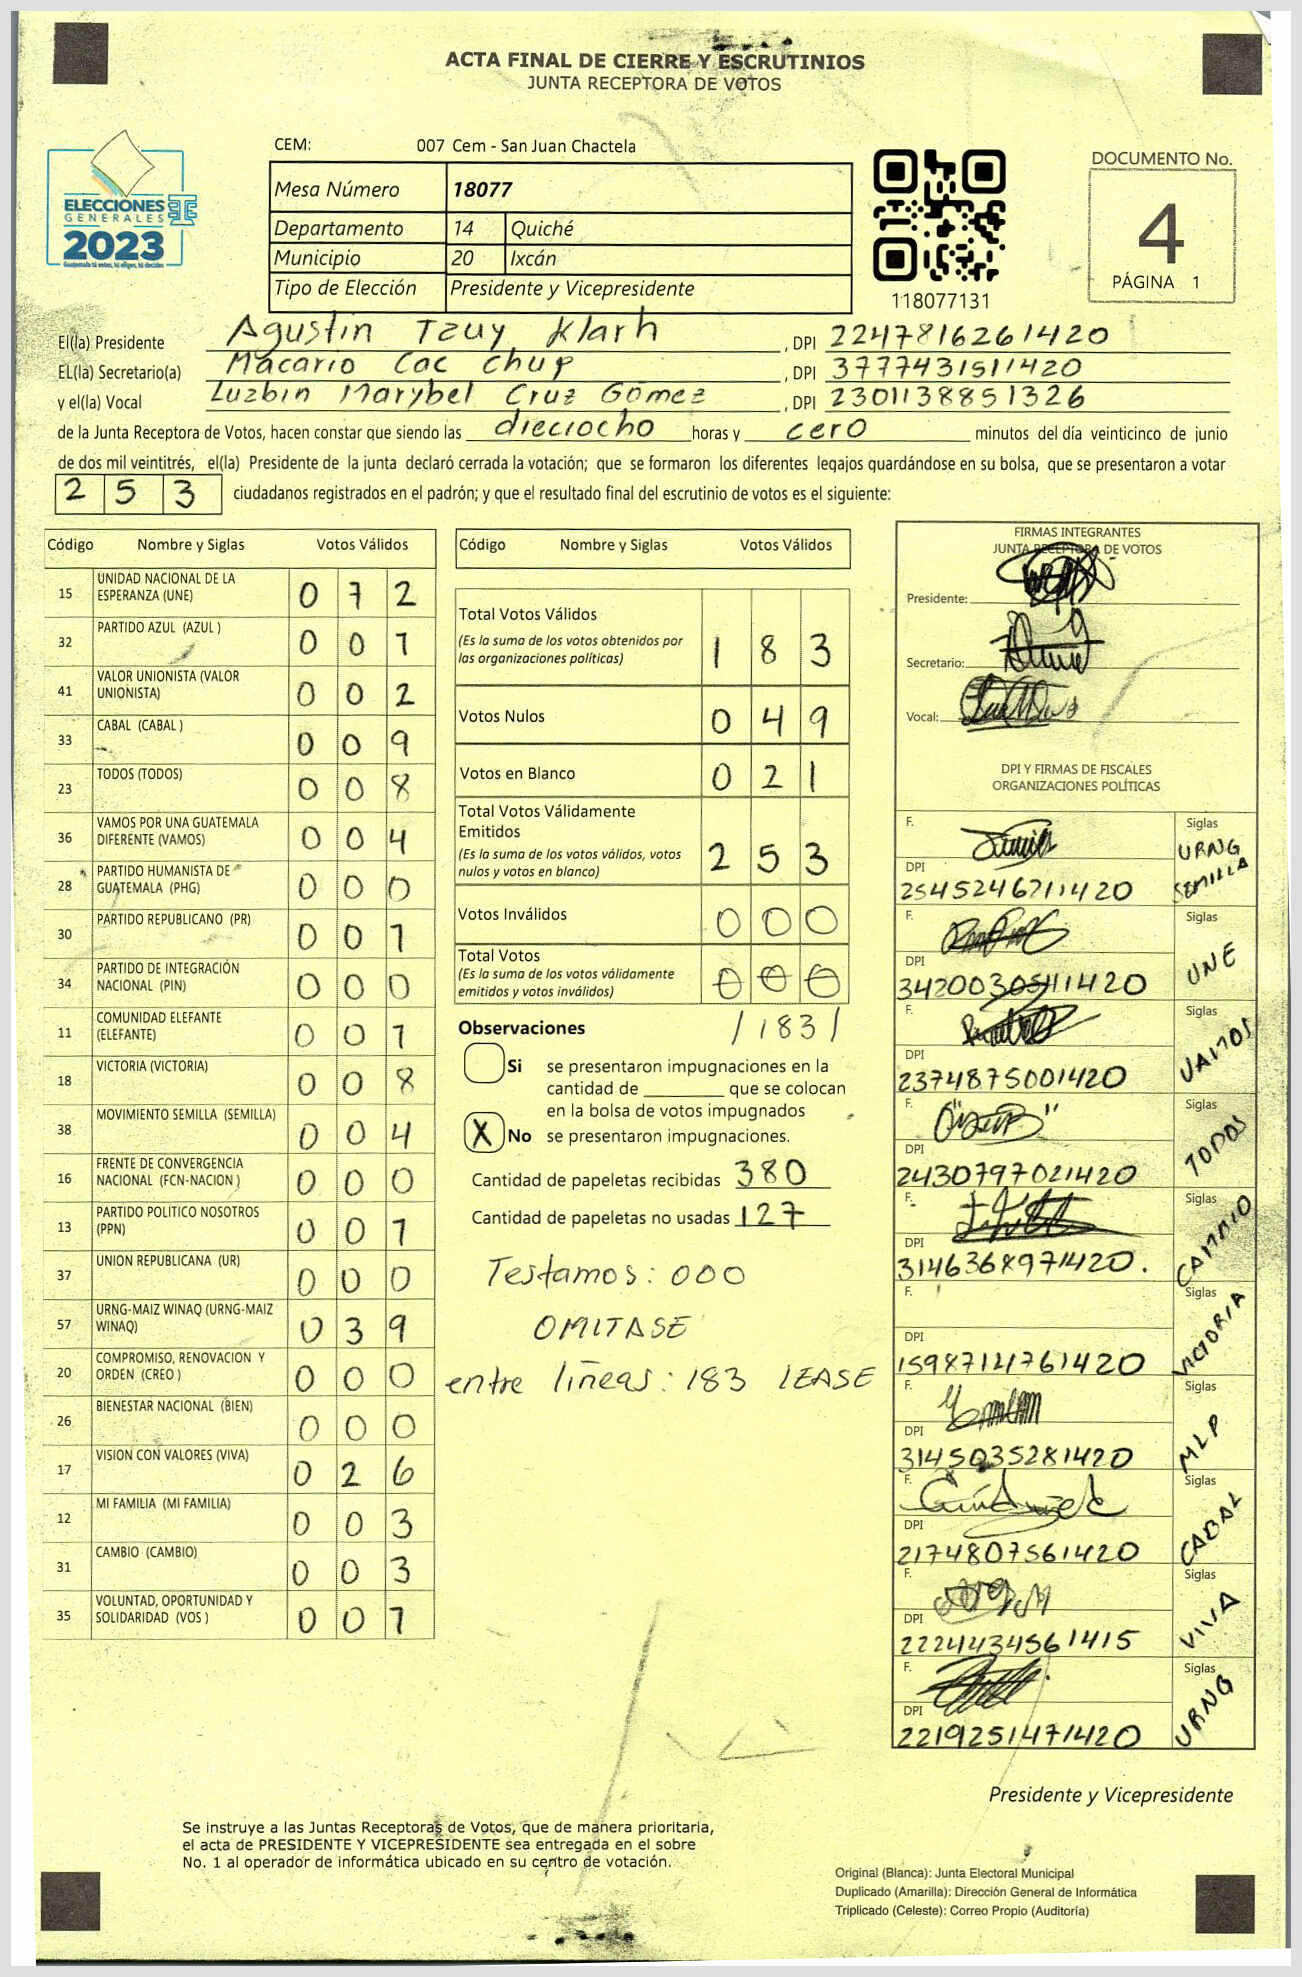 ACTA FINAL DE CIERRE Y ESCRUTINIOS
JUNTA RECEPTORA DE VOTOS
ELECCIONES
GENERALES
2023
CEM: 007 Cem - San Juan Chactela
Mesa Número 18077
Departamento 14 Quiché
Municipio 20 Ixcán
Tipo de Elección Presidente y Vicepresidente
118077131
DOCUMENTO No.
4
PÁGINA 1
El(la) Presidente Agustin Tzuy Klarh , DPI 2247816261420
EL(la) Secretario(a) Macario Coc Chup , DPI 3777431511420
y el(la) Vocal Luzbin Marybel Cruz Gómez , DPI 2301138851326
de la Junta Receptora de Votos, hacen constar que siendo las dieciocho horas y cero minutos del día veinticinco de junio
de dos mil veintitrés, el(la) Presidente de la junta declaró cerrada la votación; que se formaron los diferentes legajos guardándose en su bolsa, que se presentaron a votar
2 5 3 ciudadanos registrados en el padrón; y que el resultado final del escrutinio de votos es el siguiente:
Código Nombre y Siglas Votos Válidos
15 UNIDAD NACIONAL DE LA ESPERANZA (UNE) 0 7 2
32 PARTIDO AZUL (AZUL ) 0 0 1
41 VALOR UNIONISTA (VALOR UNIONISTA) 0 0 2
33 CABAL (CABAL ) 0 0 9
23 TODOS (TODOS) 0 0 8
36 VAMOS POR UNA GUATEMALA DIFERENTE (VAMOS) 0 0 4
28 PARTIDO HUMANISTA DE GUATEMALA (PHG) 0 0 0
30 PARTIDO REPUBLICANO (PR) 0 0 1
34 PARTIDO DE INTEGRACIÓN NACIONAL (PIN) 0 0 0
11 COMUNIDAD ELEFANTE (ELEFANTE) 0 0 1
18 VICTORIA (VICTORIA) 0 0 8
38 MOVIMIENTO SEMILLA (SEMILLA) 0 0 4
16 FRENTE DE CONVERGENCIA NACIONAL (FCN-NACION ) 0 0 0
13 PARTIDO POLITICO NOSOTROS (PPN) 0 0 1
37 UNION REPUBLICANA (UR) 0 0 0
57 URNG-MAIZ WINAQ (URNG-MAIZ WINAQ) 0 3 9
20 COMPROMISO, RENOVACION Y ORDEN (CREO ) 0 0 0
26 BIENESTAR NACIONAL (BIEN) 0 0 0
17 VISION CON VALORES (VIVA) 0 2 6
12 MI FAMILIA (MI FAMILIA) 0 0 3
31 CAMBIO (CAMBIO) 0 0 3
35 VOLUNTAD, OPORTUNIDAD Y SOLIDARIDAD (VOS ) 0 0 1
Código Nombre y Siglas Votos Válidos
Total Votos Válidos
(Es la suma de los votos obtenidos por las organizaciones políticas) 1 8 3
Votos Nulos 0 4 9
Votos en Blanco 0 2 1
Total Votos Válidamente Emitidos
(Es la suma de los votos válidos, votos nulos y votos en blanco) 2 5 3
Votos Inválidos 0 0 0
Total Votos
(Es la suma de los votos válidamente emitidos y votos inválidos) 0 0 0
/183/
Observaciones
Si se presentaron impugnaciones en la
cantidad de ________ que se colocan
en la bolsa de votos impugnados
X No se presentaron impugnaciones.
Cantidad de papeletas recibidas 380
Cantidad de papeletas no usadas 127
Testamos: 000
OMITASE
entre líneas: 183 LEASE
FIRMAS INTEGRANTES
JUNTA RECEPTORA DE VOTOS
Presidente:
Secretario:
Vocal:
DPI Y FIRMAS DE FISCALES
ORGANIZACIONES POLÍTICAS
F. Siglas
URNG
SEMILLA
DPI
2545246711420
F. Siglas
UNE
DPI
3420030511420
F. Siglas
VAMOS
DPI
2374875001420
F. Siglas
TODOS
DPI
2430797021420
F. Siglas
CAMBIO
DPI
3146368971420.
F. Siglas
VICTORIA
DPI
1598714761420
F. Siglas
MLP
DPI
3145035281420
F. Siglas
CABAL
DPI
2174807561420
F. Siglas
VIVA
DPI
2224434561415
F. Siglas
URNG
DPI
2219251471420
Presidente y Vicepresidente
Se instruye a las Juntas Receptoras de Votos, que de manera prioritaria,
el acta de PRESIDENTE Y VICEPRESIDENTE sea entregada en el sobre
No. 1 al operador de informática ubicado en su centro de votación.
Original (Blanca): Junta Electoral Municipal
Duplicado (Amarilla): Dirección General de Informática
Triplicado (Celeste): Correo Propio (Auditoría)